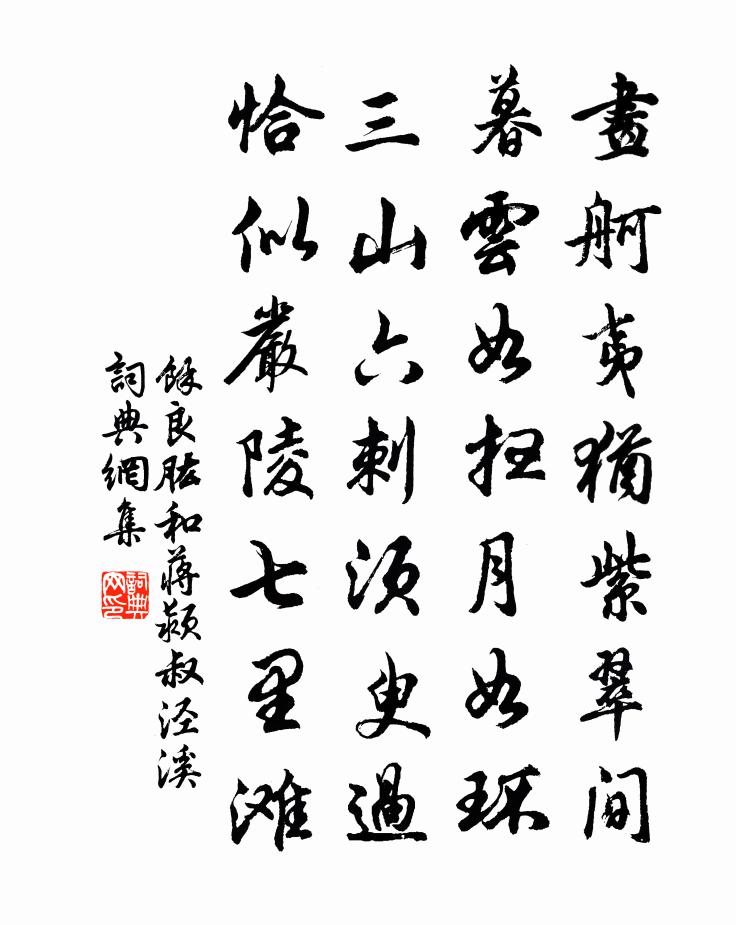 畫舸夷猶紫翠間
暮雲如扫月如环
三山六刺須臾過
恰似嚴陵七里滩
餘良肱和蔣颖叔泾溪
詞典網集
詞典网印